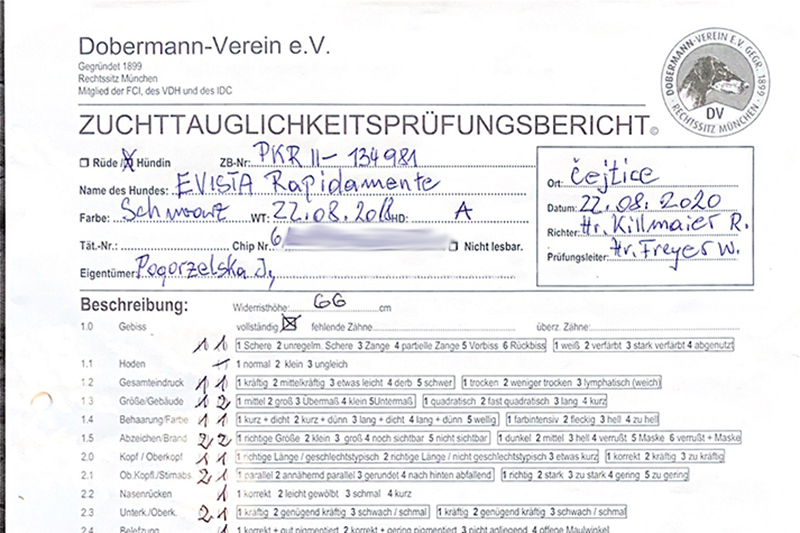 Dobermann-Verein e.V.
Gegründet 1899
Rechtssitz München
Mitglied der FCI, des VDH und des IDC
DOBERMANN-VEREIN E.V. GEGR. 1899
RECHTSSITZ MÜNCHEN
DV
ZUCHTTAUGLICHKEITSPRÜFUNGSBERICHT©
Rüde / Hündin ZB-Nr: PKR II- 134981
Name des Hundes: EVISTA Rapidamente
Farbe: Schwarz WT: 22.08.2018 HD: A
Tät.-Nr.: Chip Nr. 6 Nicht lesbar.
Eigentümer: Pogorzelska J,
Ort: čejtice
Datum: 22.08.2020
Richter: Hr. Killmaier R.
Prüfungsleiter: Hr. Freyer W.
Beschreibung: Widerristhöhe: 66 cm
1.0 Gebiss vollständig fehlende Zähne: überz. Zähne:
1 1 1 Schere 2 unregelm. Schere 3 Zange 4 partielle Zange 5 Vorbiss 6 Rückbiss 1 weiß 2 verfärbt 3 stark verfärbt 4 abgenutzt
1.1 Hoden 1 normal 2 klein 3 ungleich
1.2 Gesamteindruck 1 1 1 kräftig 2 mittelkräftig 3 etwas leicht 4 derb 5 schwer 1 trocken 2 weniger trocken 3 lymphatisch (weich)
1.3 Größe/Gebäude 1 2 1 mittel 2 groß 3 Übermaß 4 klein 5Untermaß 1 quadratisch 2 fast quadratisch 3 lang 4 kurz
1.4 Behaarung/Farbe 1 1 1 kurz + dicht 2 kurz + dünn 3 lang + dicht 4 lang + dünn 5 wellig 1 farbintensiv 2 fleckig 3 hell 4 zu hell
1.5 Abzeichen/Brand 2 2 1 richtige Größe 2 klein 3 groß 4 noch sichtbar 5 nicht sichtbar 1 dunkel 2 mittel 3 hell 4 verrußt 5 Maske 6 verrußt + Maske
2.0 Kopf / Oberkopf 1 1 1 richtige Länge / geschlechtstypisch 2 richtige Länge / nicht geschlechtstypisch 3 etwas kurz 1 korrekt 2 kräftig 3 zu kräftig
2.1 Ob.Kopfl./Stirnabs 2 1 1 parallel 2 annähernd parallel 3 gerundet 4 nach hinten abfallend 1 richtig 2 stark 3 zu stark 4 gering 5 zu gering
2.2 Nasenrücken 1 1 korrekt 2 leicht gewölbt 3 schmal 4 kurz
2.3 Unterk./Oberk. 2 1 1 kräftig 2 genügend kräftig 3 schwach / schmal 1 kräftig 2 genügend kräftig 3 schwach / schmal
2.4 Belefzung 1 1 korrekt + gut pigmentiert 2 korrekt + gering pigmentiert 3 nicht anliegend 4 offene Maulwinkel